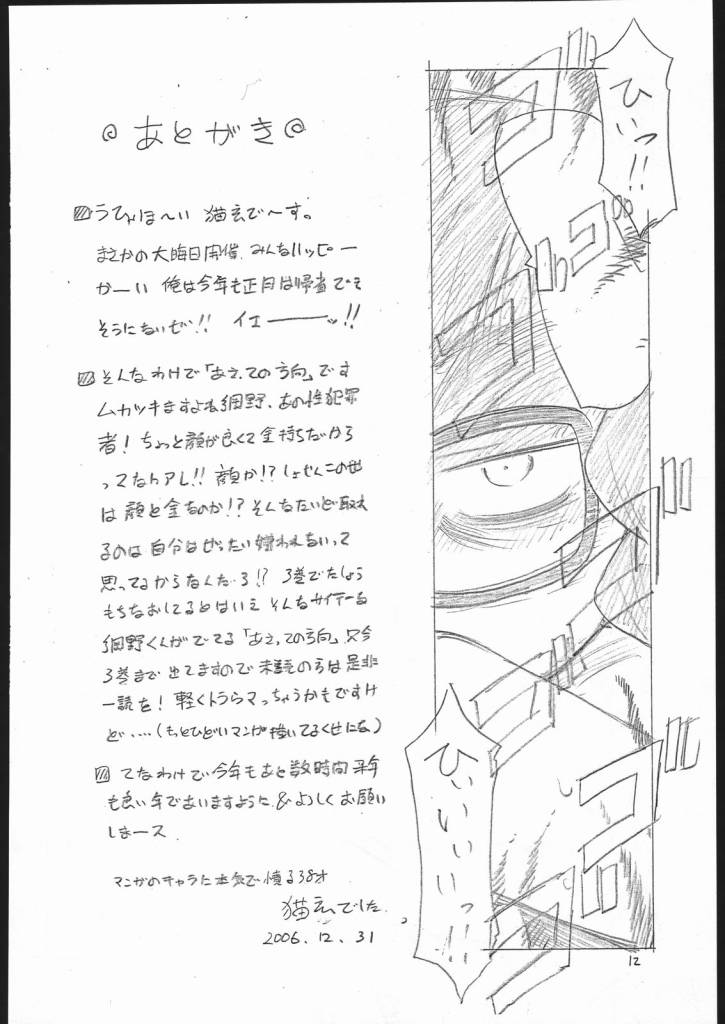 あとがき
うひょほ〜い 猫玄で〜す。
まさかの大晦日開催、みんなハッピー
かーい 俺は今年も正月は帰省でき
そうにないぜ!! イエーーーッ!!
そんなわけで「あえての方向」です
ムカツキますよね網野、あの性犯罪
者! ちょっと顔が良くて金持ちだから
ってなんだアレ!! 顔か!? しょせんこの世
は顔と金なのか!? そんなたいど取れ
るのは自分はぜったい嫌われないって
思ってるからなんだろ!? 3巻でたしょう
もちなおしてるとはいえ そんなサイテーな
網野くんがでてる「あえての方向」只今
3巻まで出てますので未読の方は是非
一読を! 軽くトラウマっちゃうかもですけ
ど‥‥(もっとひどいマンガ描いてるくせにな)
てなわけで今年もあと数時間 来年
も良い年でありますように & よろしくお願い
しまース
マンガのキャラに本気で憤る38才
猫玄でした。
2006.12.31
ひいっ!!
ひいいいっ!!
12